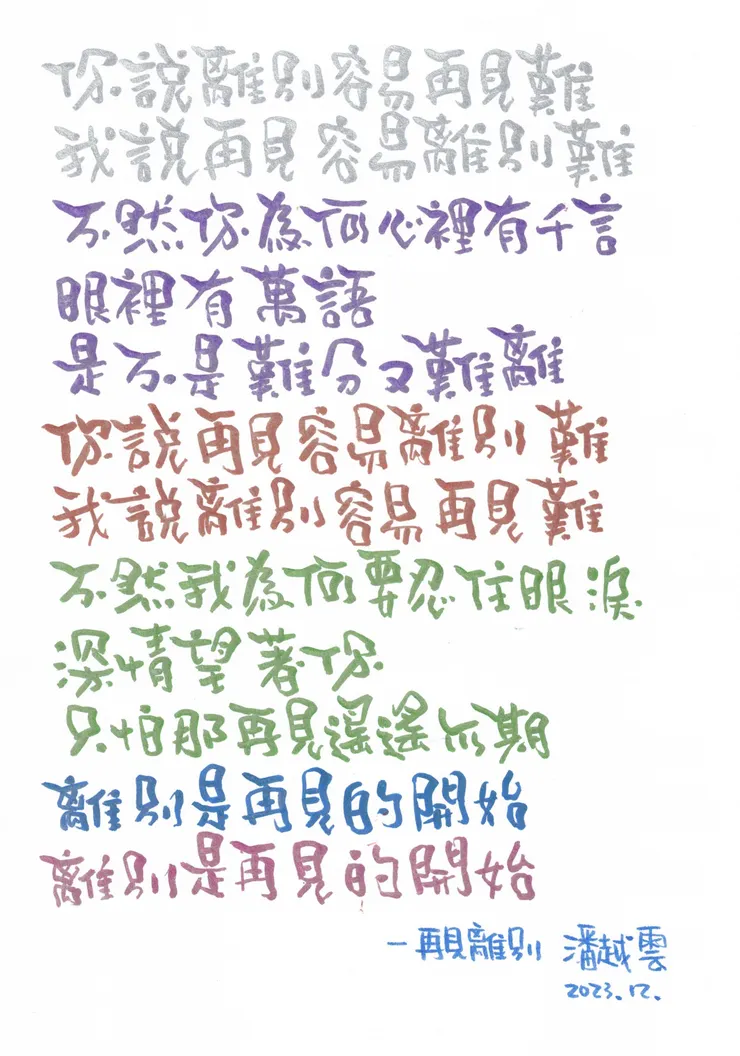 你說離別容易再見難
我說再見容易離別難
不然你為何心裡有千言
眼裡有萬語
是不是難分又難離
你說再見容易離別難
我說離別容易再見難
不然我為何要忍住眼淚
深情望著你
只怕那再見遙遙無期
離別是再見的開始
離別是再見的開始
－再見離別 潘越雲
2023.12.